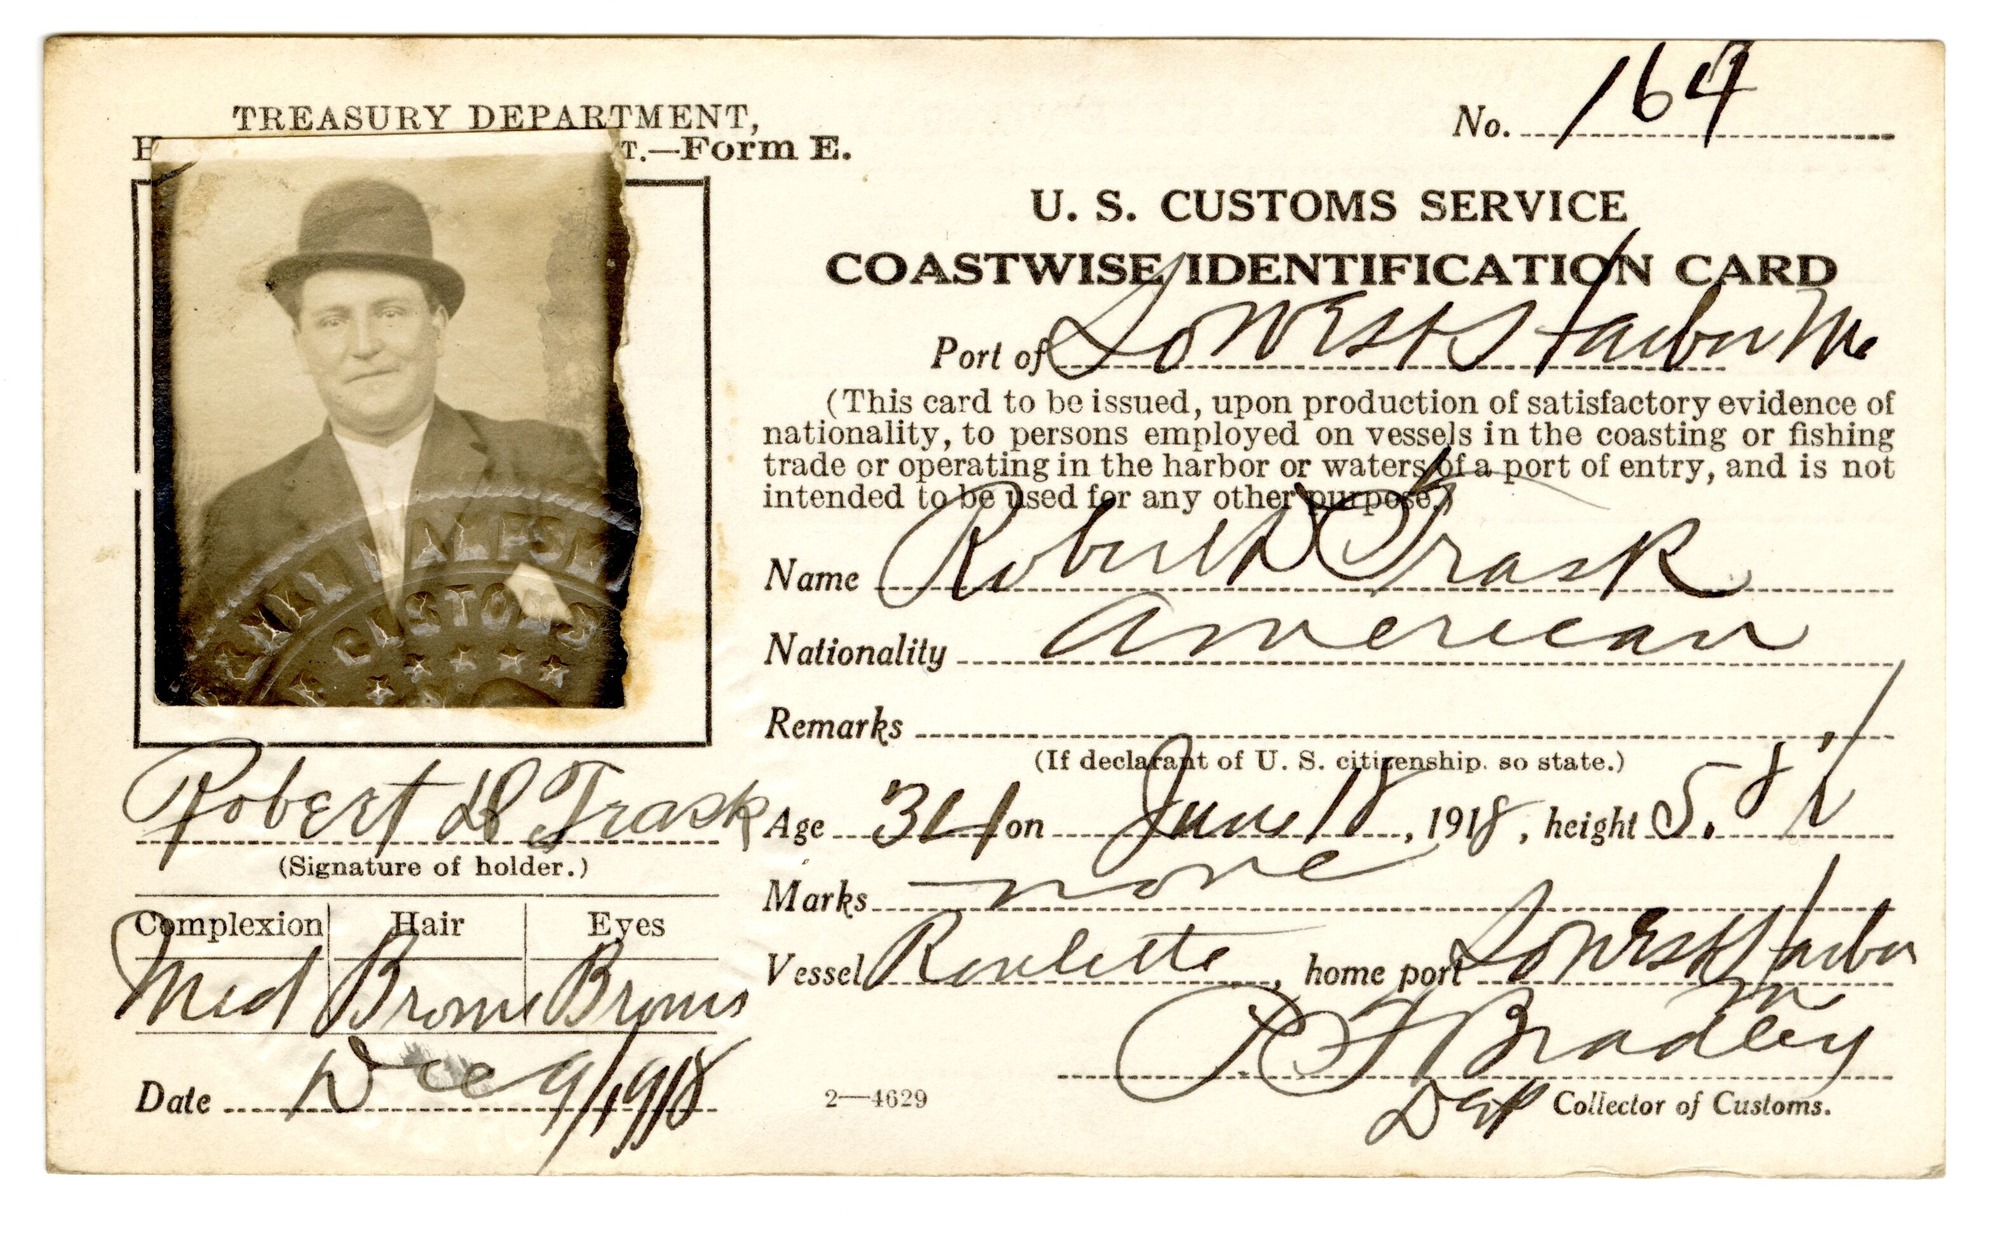 TREASURY DEPARTMENT,
T.—Form E.
No. 164
U. S. CUSTOMS SERVICE
COASTWISE IDENTIFICATION CARD
Port of So West Harbor Me
(This card to be issued, upon production of satisfactory evidence of
nationality, to persons employed on vessels in the coasting or fishing
trade or operating in the harbor or waters of a port of entry, and is not
intended to be used for any other purpose.)
Name Robert D Trask
Nationality American
Remarks
(If declarant of U. S. citizenship, so state.)
Age 34 on June 18, 1918, height 5. 8 1/2
Marks none
Vessel, home port So West Harbor
Me
P F Bradley
Dep Collector of Customs.
CUSTOMS
Robert D Trask
(Signature of holder.)
Complexion Hair Eyes
Med Brown Brown
Date Dec 9/1918
2—4629